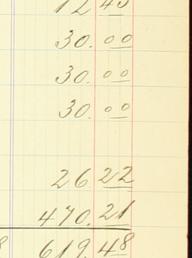 30.00
30.00
30.00
26 22
470.21
619.48